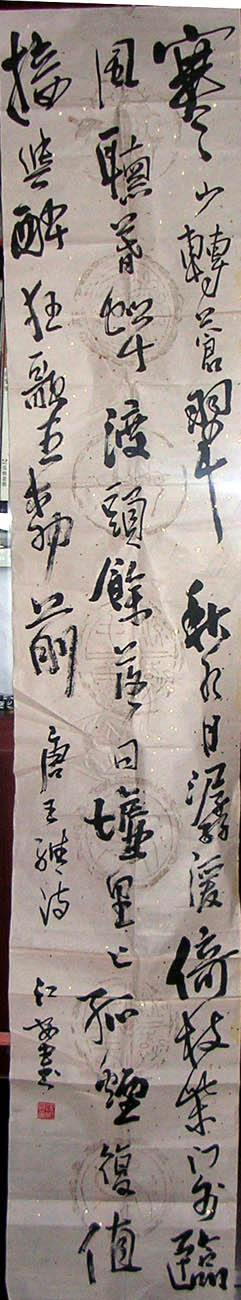 寒山轉蒼翠秋水日潺湲倚杖柴門外臨
風聽暮蟬渡頭餘落日墟里上孤煙復值
接輿醉狂歌五柳前 唐王維詩 書